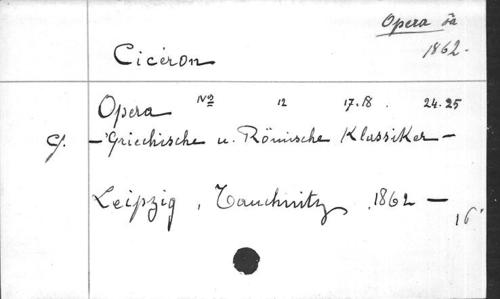 Opera
1862.
Cicéron
Opera Nº 12 17.18. 24.25
– Griechische u. Römische Klassiker –
Leipzig, Tauchnitz, 1862 –
16º